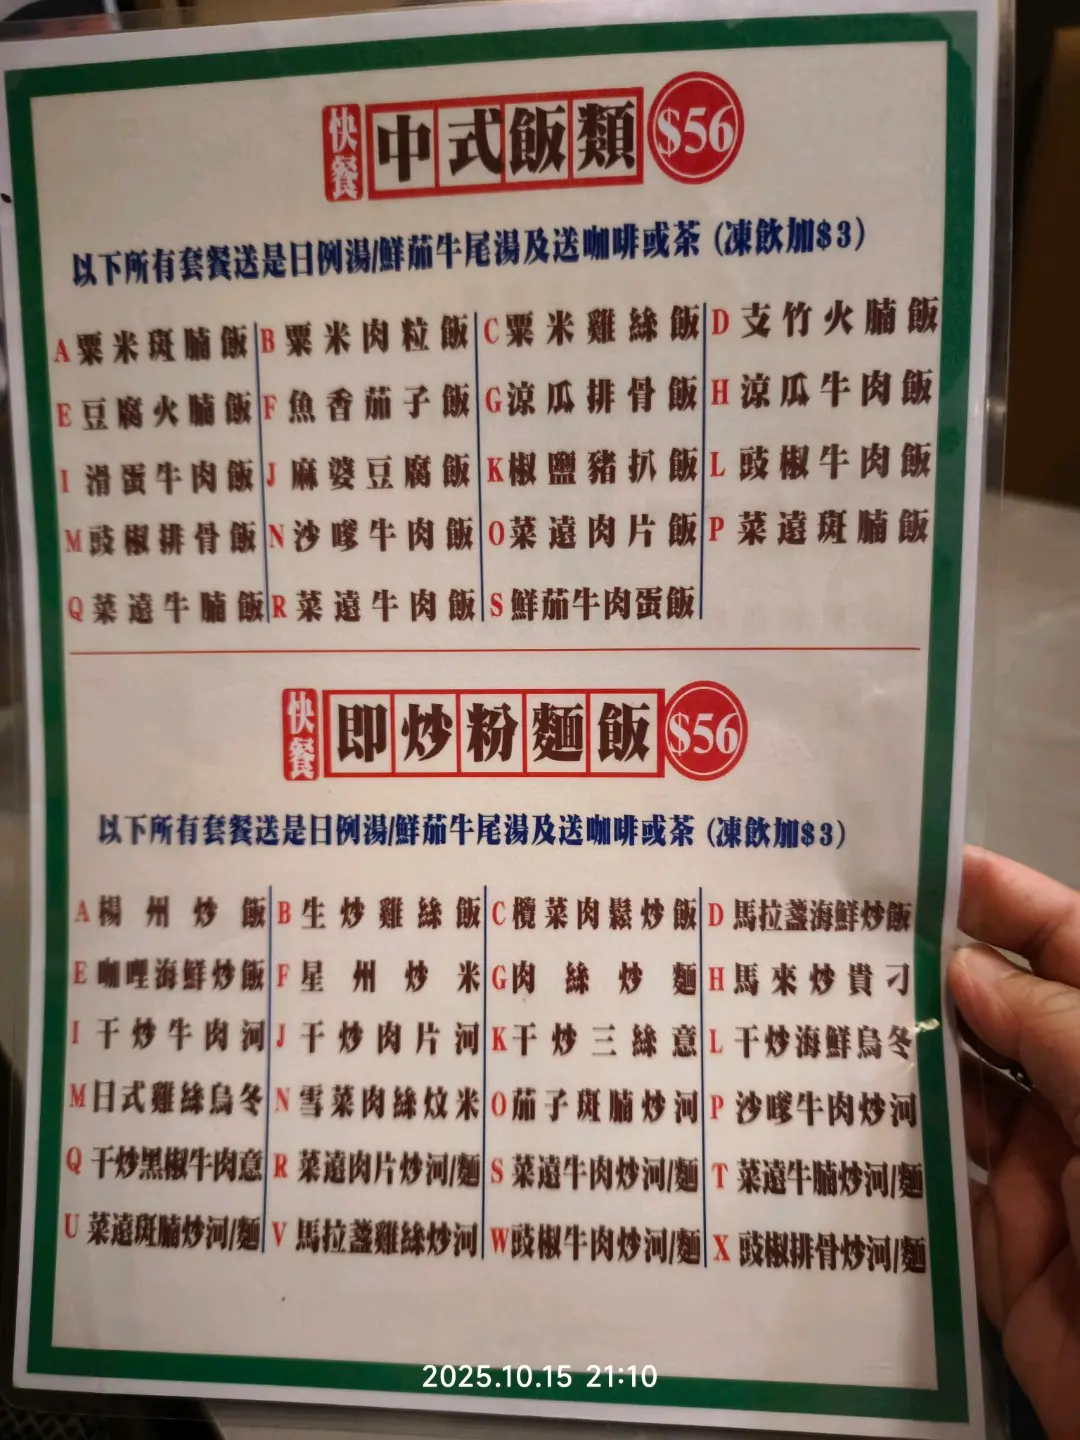 快餐 中式飯類 $56
以下所有套餐送是日例湯/鮮茄牛尾湯及送咖啡或茶 (凍飲加$3)
A 粟米斑腩飯 B 粟米肉粒飯 C 粟米雞絲飯 D 支竹火腩飯
E 豆腐火腩飯 F 魚香茄子飯 G 涼瓜排骨飯 H 涼瓜牛肉飯
I 滑蛋牛肉飯 J 麻婆豆腐飯 K 椒鹽豬扒飯 L 豉椒牛肉飯
M 豉椒排骨飯 N 沙嗲牛肉飯 O 菜遠肉片飯 P 菜遠斑腩飯
Q 菜遠牛腩飯 R 菜遠牛肉飯 S 鮮茄牛肉蛋飯
快餐 即炒粉麵飯 $56
以下所有套餐送是日例湯/鮮茄牛尾湯及送咖啡或茶 (凍飲加$3)
A 楊州炒飯 B 生炒雞絲飯 C 欖菜肉鬆炒飯 D 馬拉盞海鮮炒飯
E 咖哩海鮮炒飯 F 星州炒米 G 肉絲炒麵 H 馬來炒貴刁
I 干炒牛肉河 J 干炒肉片河 K 干炒三絲意 L 干炒海鮮烏冬
M 日式雞絲烏冬 N 雪菜肉絲炆米 O 茄子斑腩炒河 P 沙嗲牛肉炒河
Q 干炒黑椒牛肉意 R 菜遠肉片炒河/麵 S 菜遠牛肉炒河/麵 T 菜遠牛腩炒河/麵
U 菜遠斑腩炒河/麵 V 馬拉盞雞絲炒河 W 豉椒牛肉炒河/麵 X 豉椒排骨炒河/麵
2025.10.15 21:10